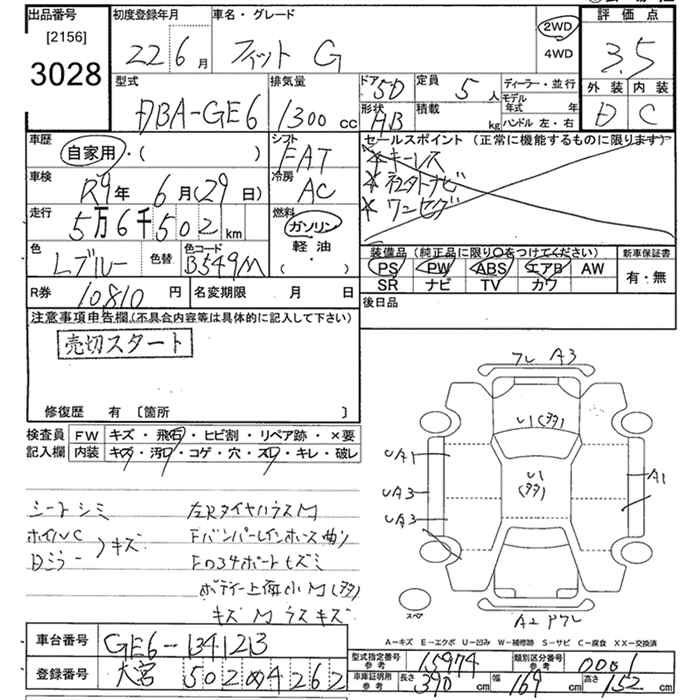 出品番号
[2156]
3028
初度登録年月
22 6月
車名・グレード
フィット G
2WD
4WD
評価点
3.5
外装 内装
D C
型式
DBA-GE6
排気量
1300 cc
ドア 5D
定員 5人
形状 HB
積載 kg
ディーラー・並行
モデル年式 年
ハンドル 左・右
車歴
自家用・( )
シフト
FAT
車検
R9年 6月(29日)
冷房
AC
走行
5万6千502km
燃料
ガソリン
軽油
・( )
色
Lブルー
色替
色コード
B549M
セールスポイント (正常に機能するものに限ります)
キーレス
ワンセグ
装備品 (純正品に限り○をつけてください)
PS PW ABS エアB AW
SR ナビ TV カワ
新車保証書
有・無
R券 10810円
名変期限 月 日
後日品
注意事項申告欄(不具合内容等は具体的に記入して下さい)
売切スタート
修復歴 有 [箇所 ]
検査員記入欄
FW キズ・飛石・ヒビ割・リペア跡・×要
内装 キズ・汚れ・コゲ・穴・スレ・キレ・破レ
シートシミ
ホイルC
Dミラー
キズ
左Rタイヤハウス M
Fバンパーレインホース曲り
ボディー上海小M(多)
フレ A3
U1(多)
U1
(多)
UA1
UA3
UA3
A1
A2
スペア
A-キズ E-エクボ U-凹み W-補修跡 S-サビ C-腐食 XX-交換済
車台番号
GE6-1341213
登録番号
大宮 502 め 4262
型式指定番号
参考
15974
類別区分番号
参考
0001
車庫証明用
参考
長さ 390cm
幅 169cm
高さ 152cm